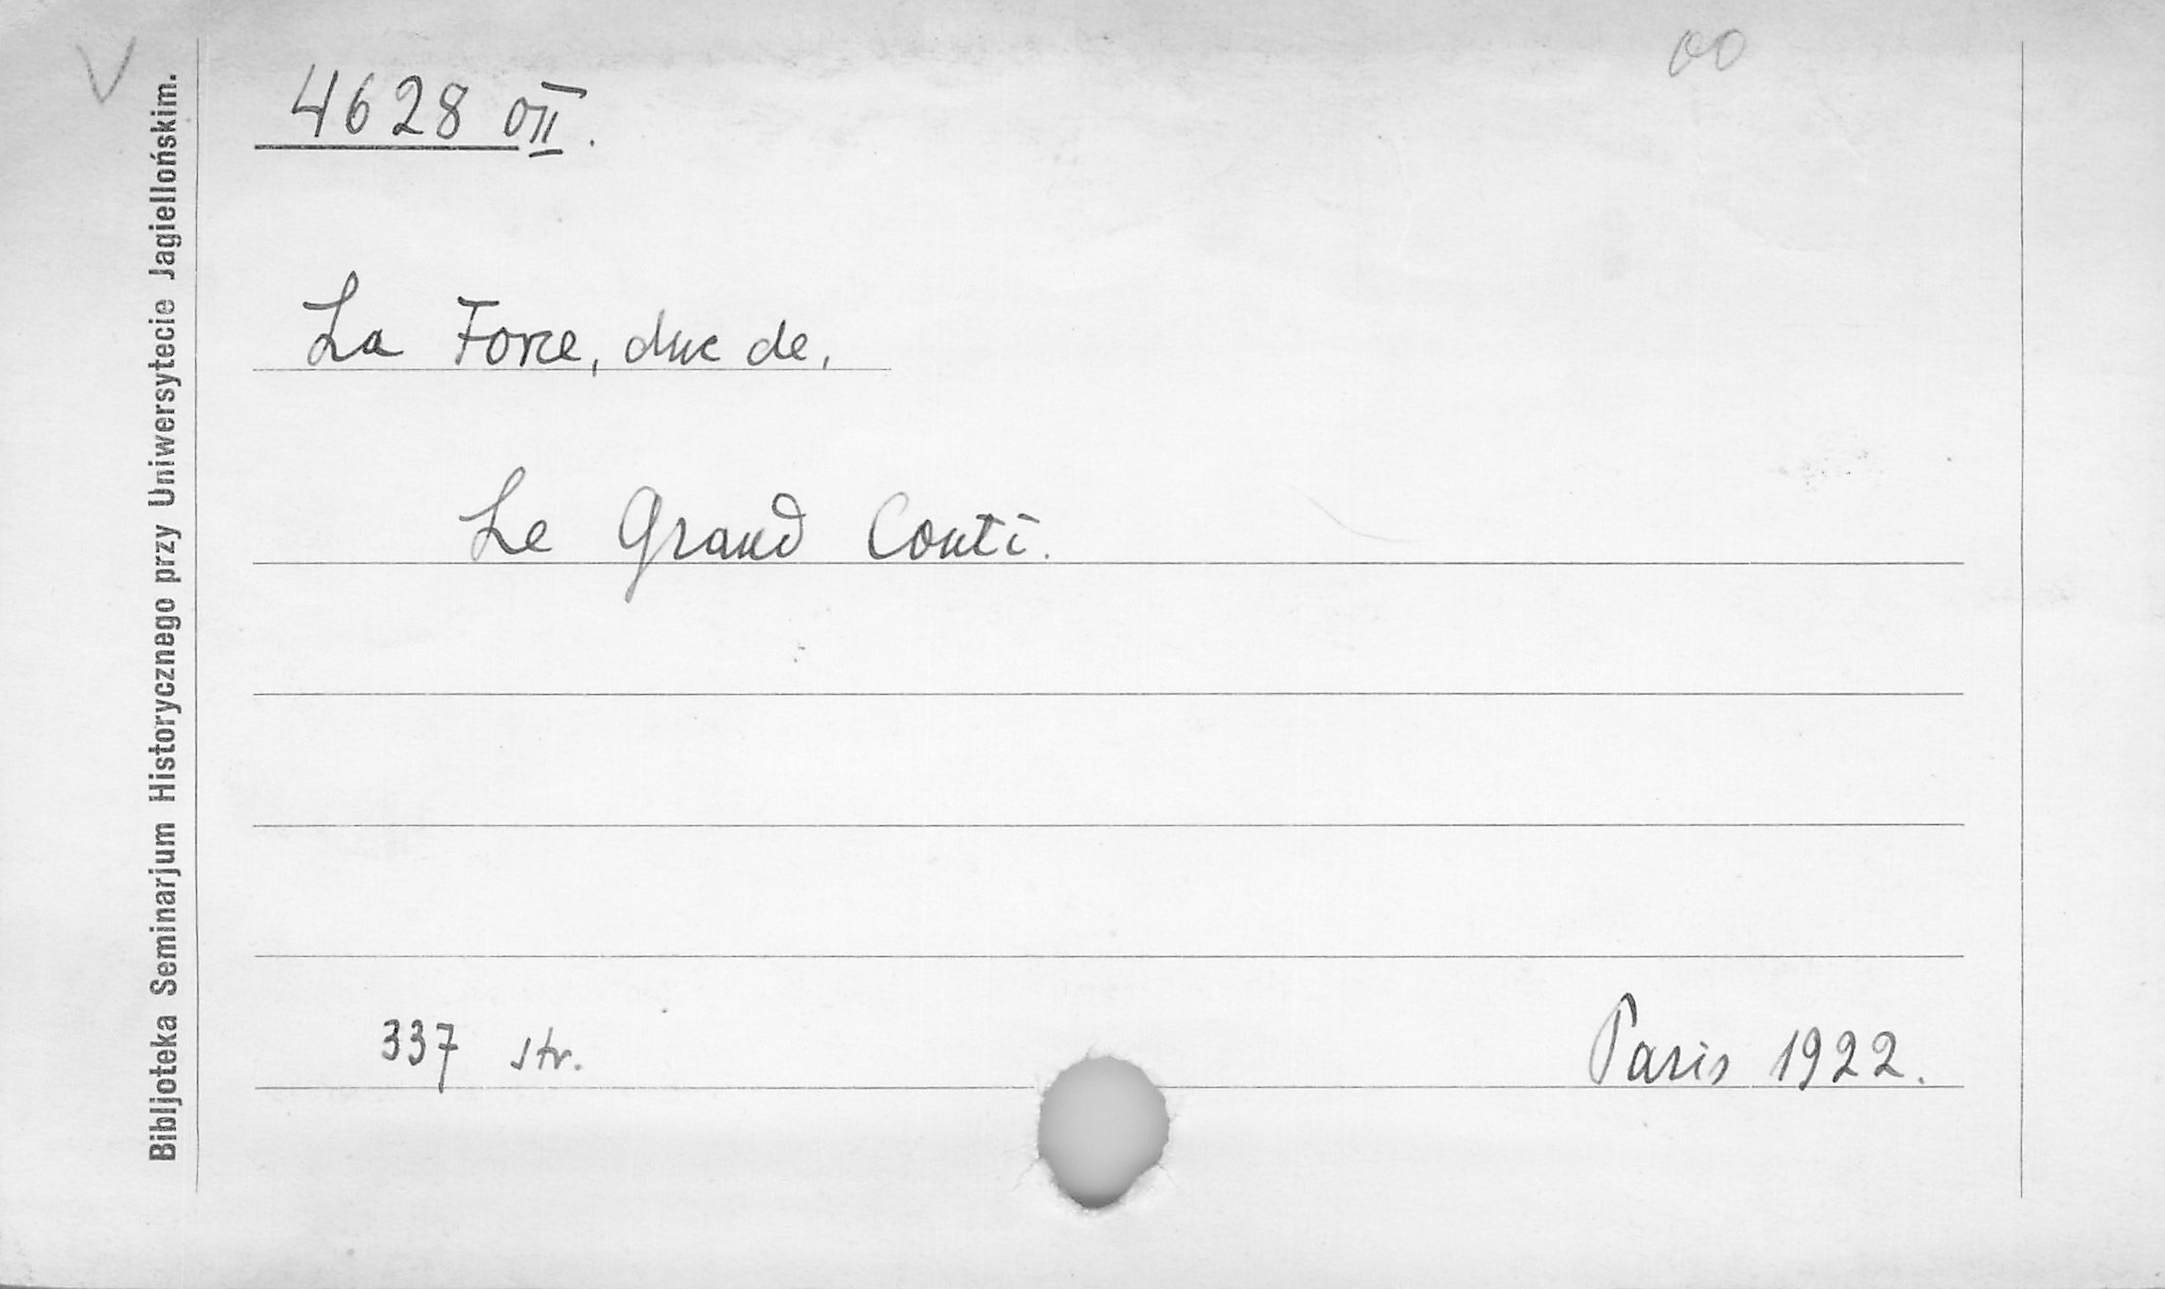 V
00
4628 OII.
La Force, duc de,
Le Grand Conti.
337 str.
Paris 1922.
Bibljoteka Seminarjum Historycznego przy Uniwersytecie Jagiellońskim.